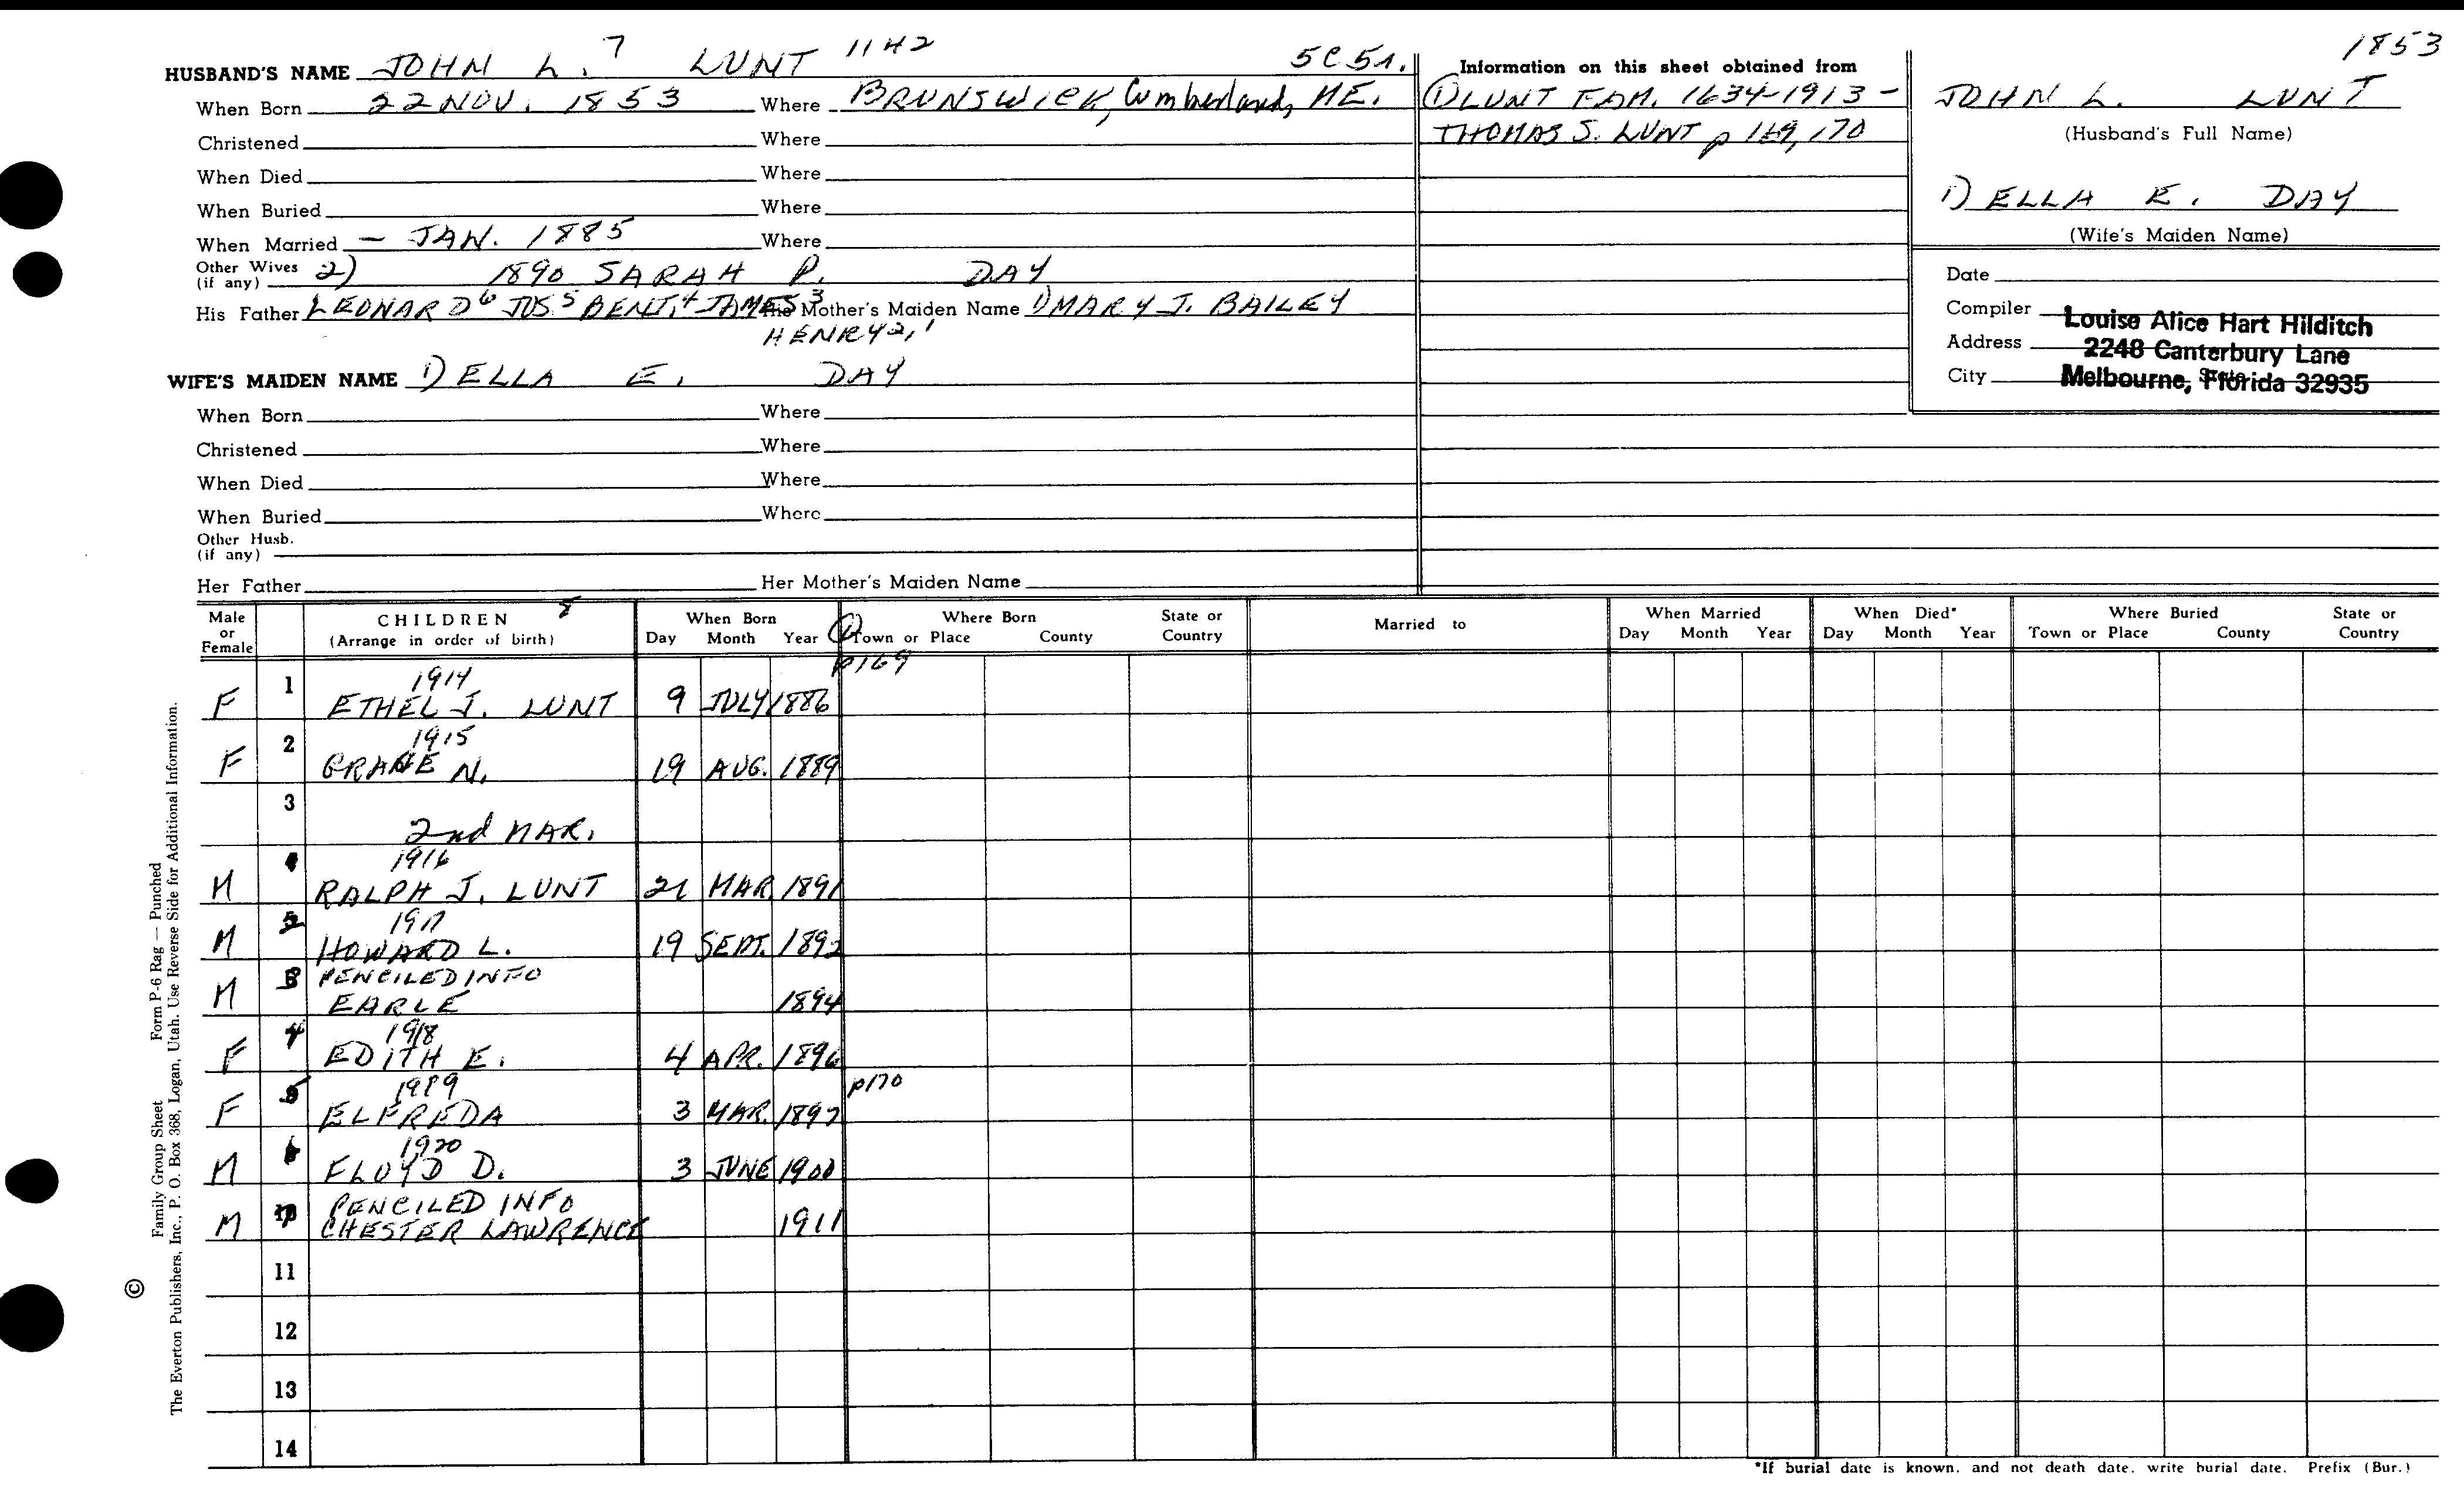 1853
HUSBAND'S NAME JOHN L.7 LUNT 1142 5C51.
When Born 22 NOV. 1853 Where BRUNSWICK, Cumberland, ME.
Christened Where
When Died Where
When Buried Where
When Married - JAN. 1885 Where
Other Wives (if any) 2) 1890 SARAH P. DAY
His Father LEONARD6 JOS5 BENJ,4 JAMES3 His Mother's Maiden Name 1) MARY J. BAILEY
HENRY2,1
WIFE'S MAIDEN NAME 1) ELLA E. DAY
When Born Where
Christened Where
When Died Where
When Buried Where
Other Husb.
(if any)
Her Father Her Mother's Maiden Name
Information on this sheet obtained from
① LUNT FAM. 1634-1913 -
THOMAS S. LUNT p 169, 170
JOHN L. LUNT
(Husband's Full Name)
1) ELLA E. DAY
(Wife's Maiden Name)
Date
Compiler Louise Alice Hart Hilditch
Address 2248 Canterbury Lane
City Melbourne, Florida 32935 State
Male or Female CHILDREN 8 (Arrange in order of birth) When Born Day Month Year ① Where Born Town or Place County State or Country Married to When Married Day Month Year When Died* Day Month Year Where Buried Town or Place County State or Country
p169
1914
F 1 ETHEL J. LUNT 9 JULY 1886
1915
F 2 GRACE N. 19 AUG. 1889
3 2nd MAR.
1916
M RALPH J. LUNT 21 MAR. 1891
1917
M HOWARD L. 19 SEPT. 1892
PENCILED INFO
M EARLE 1894
1918
F 4 EDITH E. 4 APR. 1896
F 5 ELFREDA 3 MAR. 1897 p170
1920
M 6 FLOYD D. 3 JUNE 1900
PENCILED INFO
M CHESTER LAWRENCE 1911
11
12
13
14
*If burial date is known, and not death date, write burial date. Prefix (Bur.)
© Family Group Sheet Form P-6 Rag — Punched
The Everton Publishers, Inc., P. O. Box 368, Logan, Utah. Use Reverse Side for Additional Information.